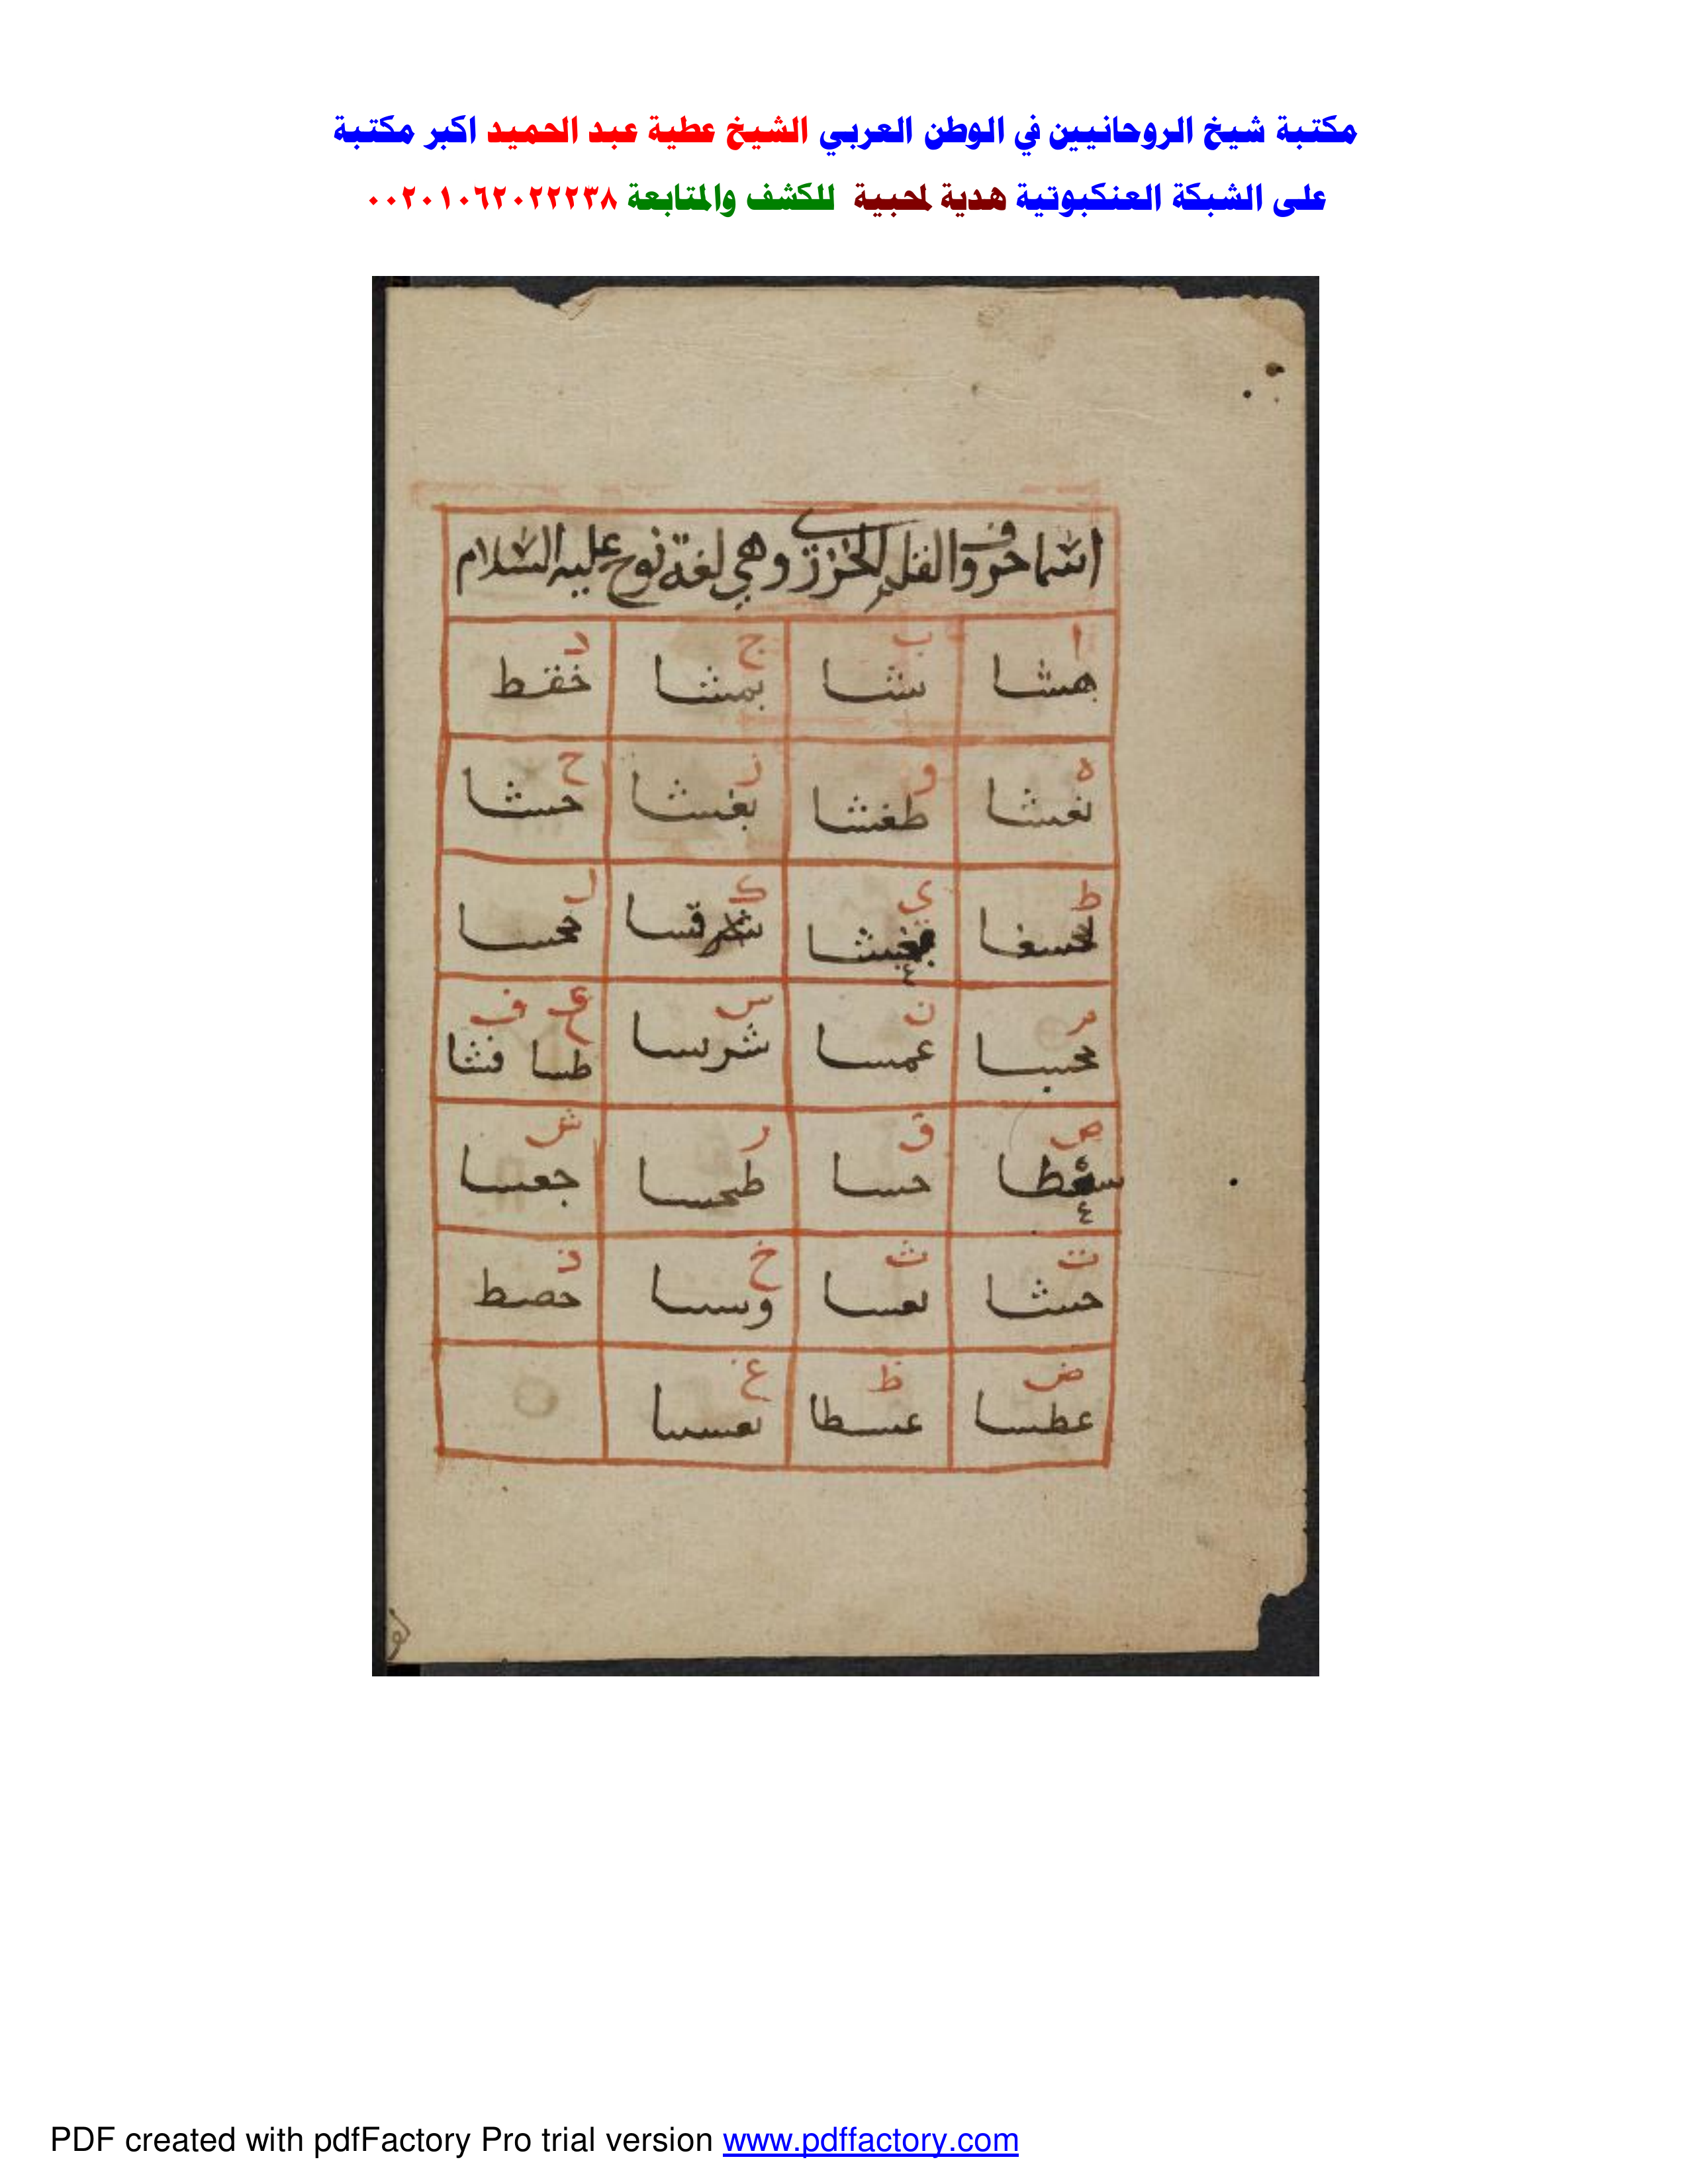 مكتبة شيخ الروحانيين في الوطن العربي الشيخ عطية عبد الحميد اكبر مكتبة
على الشبكة العنكبوتية هدية لمحبية للكشف والمتابعة ٠٠٢٠١٠٦٢٠٢٢٢٣٨
اسما حروف القلم الخزرى وهي لغة نوح عليه السلام
ا ب ج د
هشا بشا بمشا خفط
ه و ز ح
نغشا طغشا بغشا حسشا
ط ى ك ل
لحسغا شرقسا محسا
م ن س ع ف
محسا عمسا شرسا طسا فشا
ص ق ر ش
حسا طحسا جعسا
ت ث خ ذ
حسثا نعسا وسسا حصط
ض ظ غ
عطسا عسطا نعسا
PDF created with pdfFactory Pro trial version www.pdffactory.com